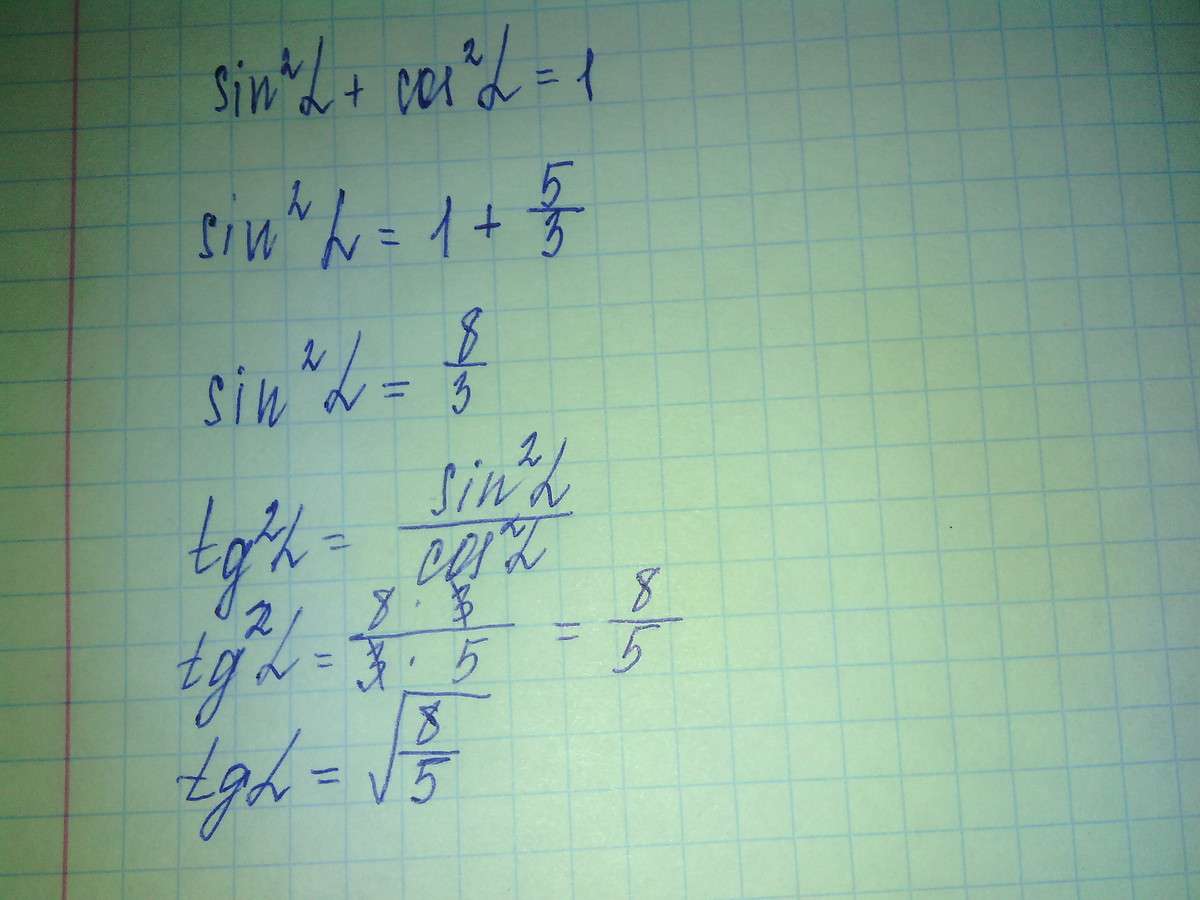 sin²α + cos²α = 1
sin²α = 1 + 5/3
sin²α = 8/3
tg²α = sin²α/cos²α
tg²α = 8 · 3/3 · 5 = 8/5
tgα = √8/5